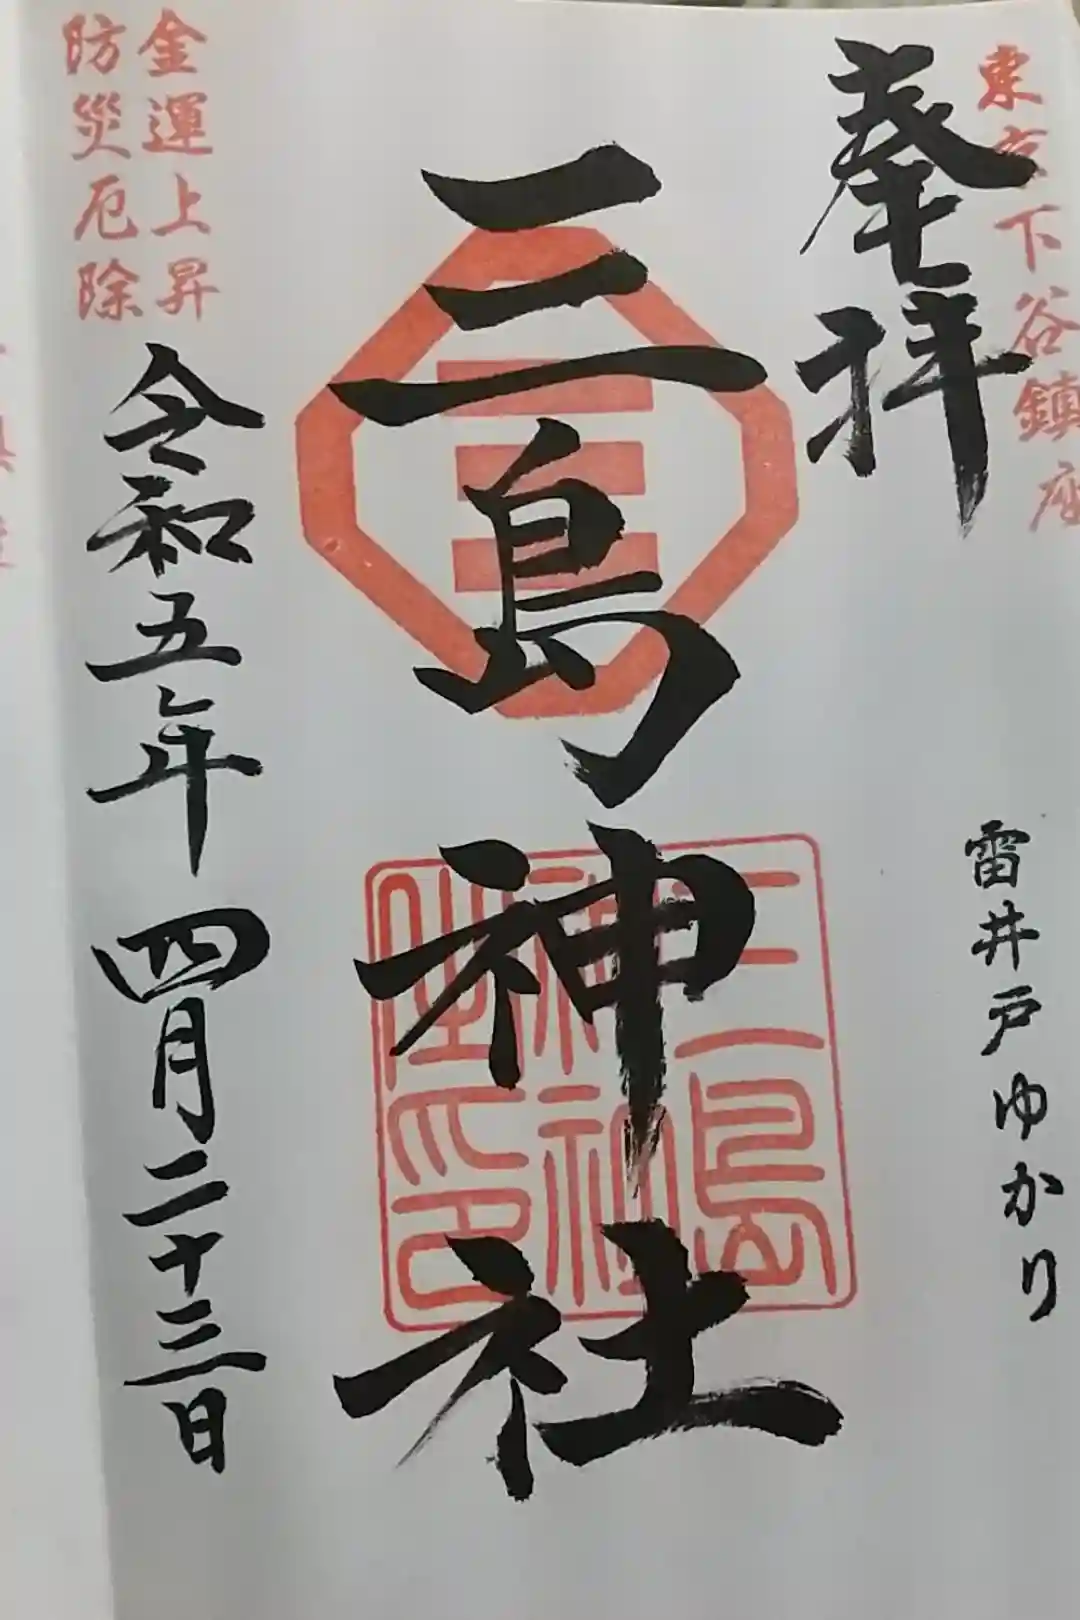 東京下谷鎮座
奉拝
雷井戸ゆかり
三島神社
三島
神社
之印
令和五年 四月二十三日
金運上昇
防災厄除